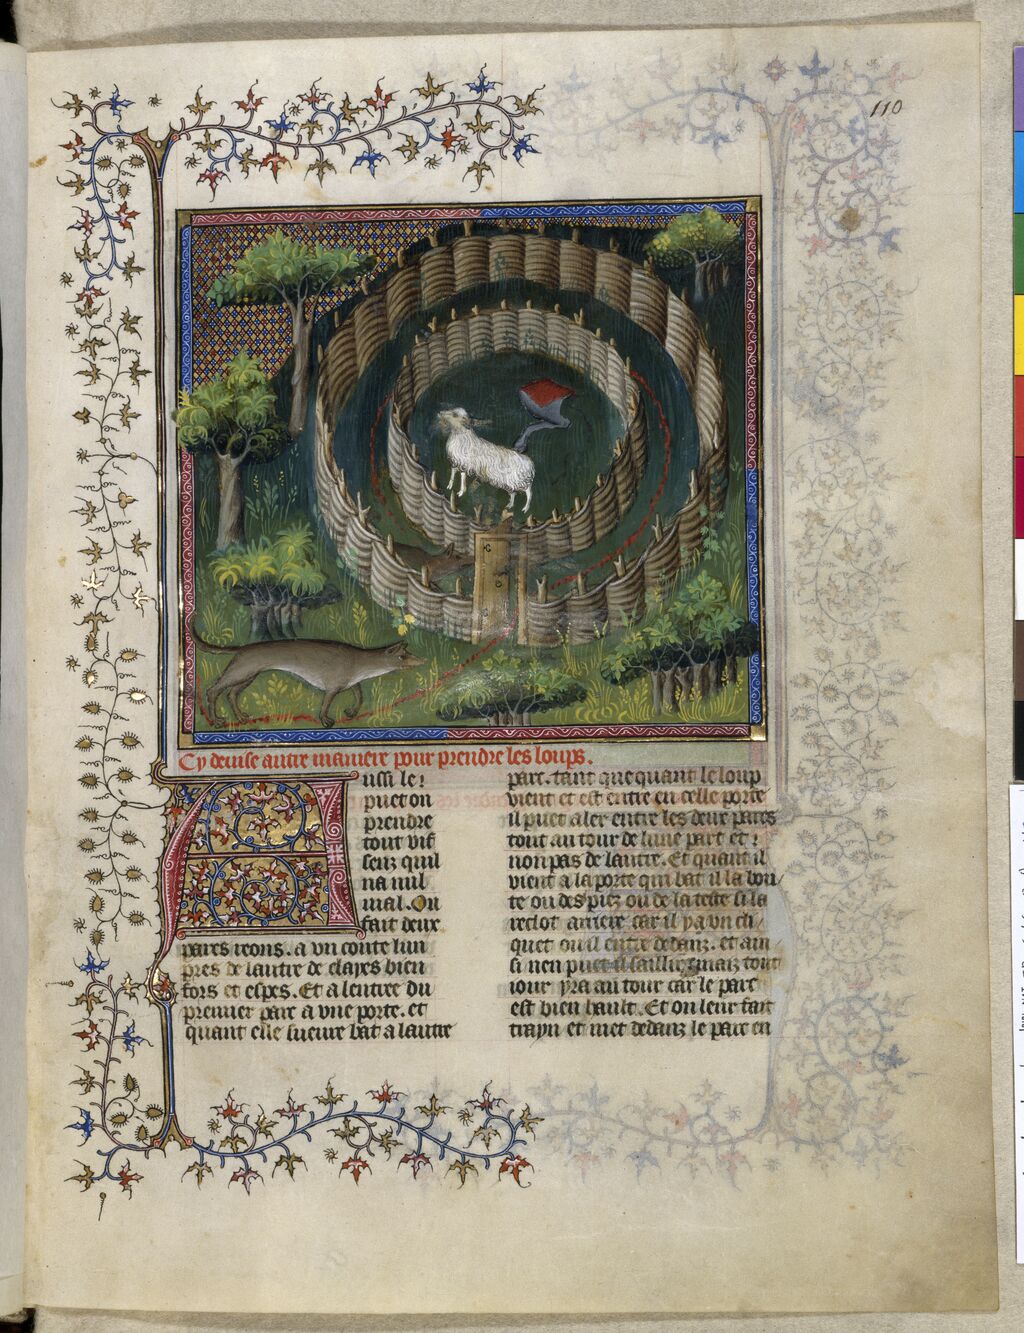 110
Cy deuise autre maniere pour prendre les loups.
Aussi le
puet on
prendre
tout vif
senz quil
na nul
mal. On
fait deux
parcs reons. a vn conte lun
pres de lautre de clayes bien
fors et espes. Et a lentree du
premier parc a vne porte. et
quant elle sueure bat a lautre
part. tant que quant le loup
vient et est entre en celle porte
il puet aler entre les deux parcs
tout au tour de lune part et
non pas de lautre. Et quant il
vient a la porte qui bat il la bou
te ou des piez ou de la teste si la
reclot arriere car il ya vn cli
quet ou il entre dedanz. et ain
si nen puet il saillir, mais tout
iour yra au tour car le parc
est bien hault. Et on leur fait
trayn et met dedanz le parc en